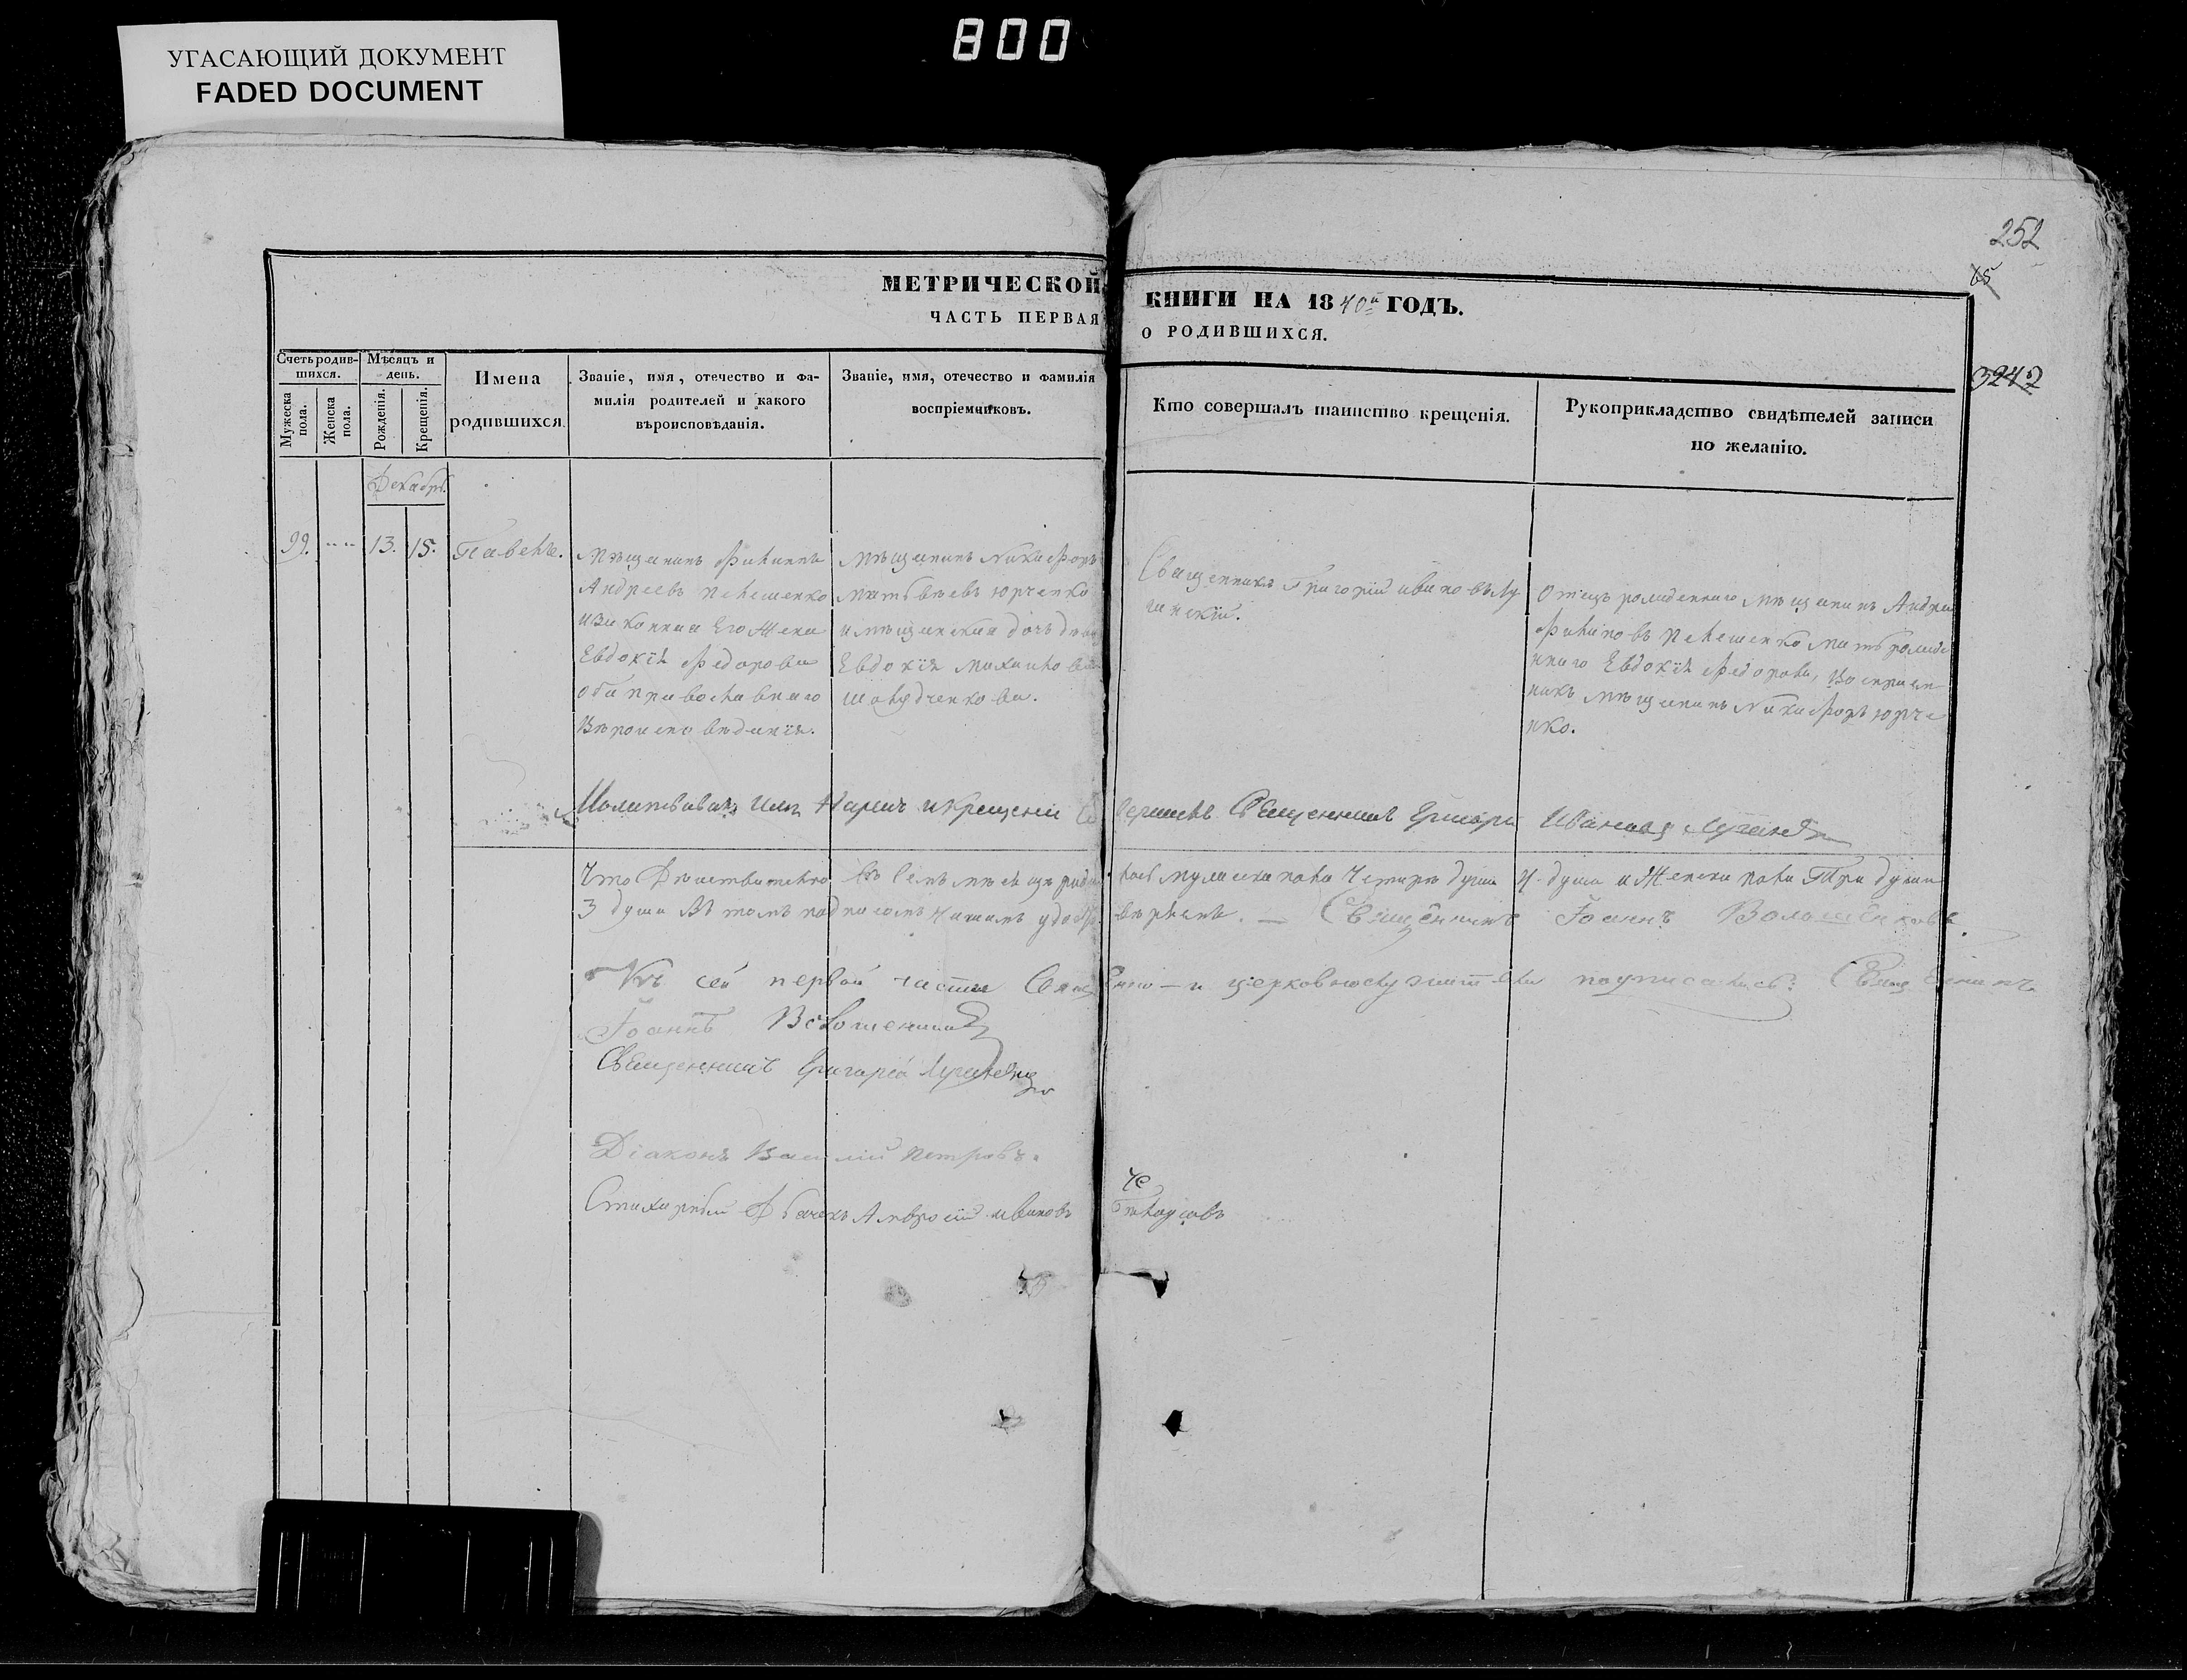 800
УГАСАЮЩИЙ ДОКУМЕНТ
FADED DOCUMENT
252
65
3242
МЕТРИЧЕСКОЙ КНИГИ НА 1840й ГОДЪ.
ЧАСТЬ ПЕРВАЯ О РОДИВШИХСЯ.
Счетъ родив-
шихся.
Мужеска
пола.
Женска
пола.
Мѣсяцъ и
день.
Рожденія.
Крещенія.
Имена
родившихся.
Званіе, имя, отечество и фа-
милія родителей и какого
вѣроисповѣданія.
Званіе, имя, отечество и фамилія
воспріемниковъ.
Кто совершалъ таинство крещенія.
Рукоприкладство свидѣтелей записи
по желанію.
Декабрь.
99.
13.
15.
Павелъ.
Мѣщанинъ Филиппъ
Андреевъ Пелешенко
и законная Его Жена
Евдокія Федорова
оба православнаго
Вѣроисповѣданія.
Мѣщанинъ Никифоръ
Матвѣевъ Юрченко
и мѣщанская дочь
Евдокія Михайлова
Священникъ Григорій Ивановъ Лу
гинскій.
Отецъ рожденнаго Мѣщанинъ Андрей
Филиповъ Пелешенко Мать рожде
ннаго Евдокія Федорова, Воспріем
никъ Мѣщанинъ Никифоръ Юрче
нко.
Молитвовалъ Имя Нарекъ и Крещеніе Совершилъ Священникъ Григорій Ивановъ
Что Дѣйствительно въ семъ мѣсяцѣ родилось мужеска пола Четыре души 4 души и Женска пола Три души
3 души Въ томъ подписомъ нашимъ удостовѣряемъ. — Священникъ Іоаннъ
Къ сей первой части Священно- и церковнослужители подписались: Священникъ
Іоаннъ
Священникъ Григорій
Діаконъ Василій Петровъ.
Стихарный Дьячекъ Амвросій Ивановъ